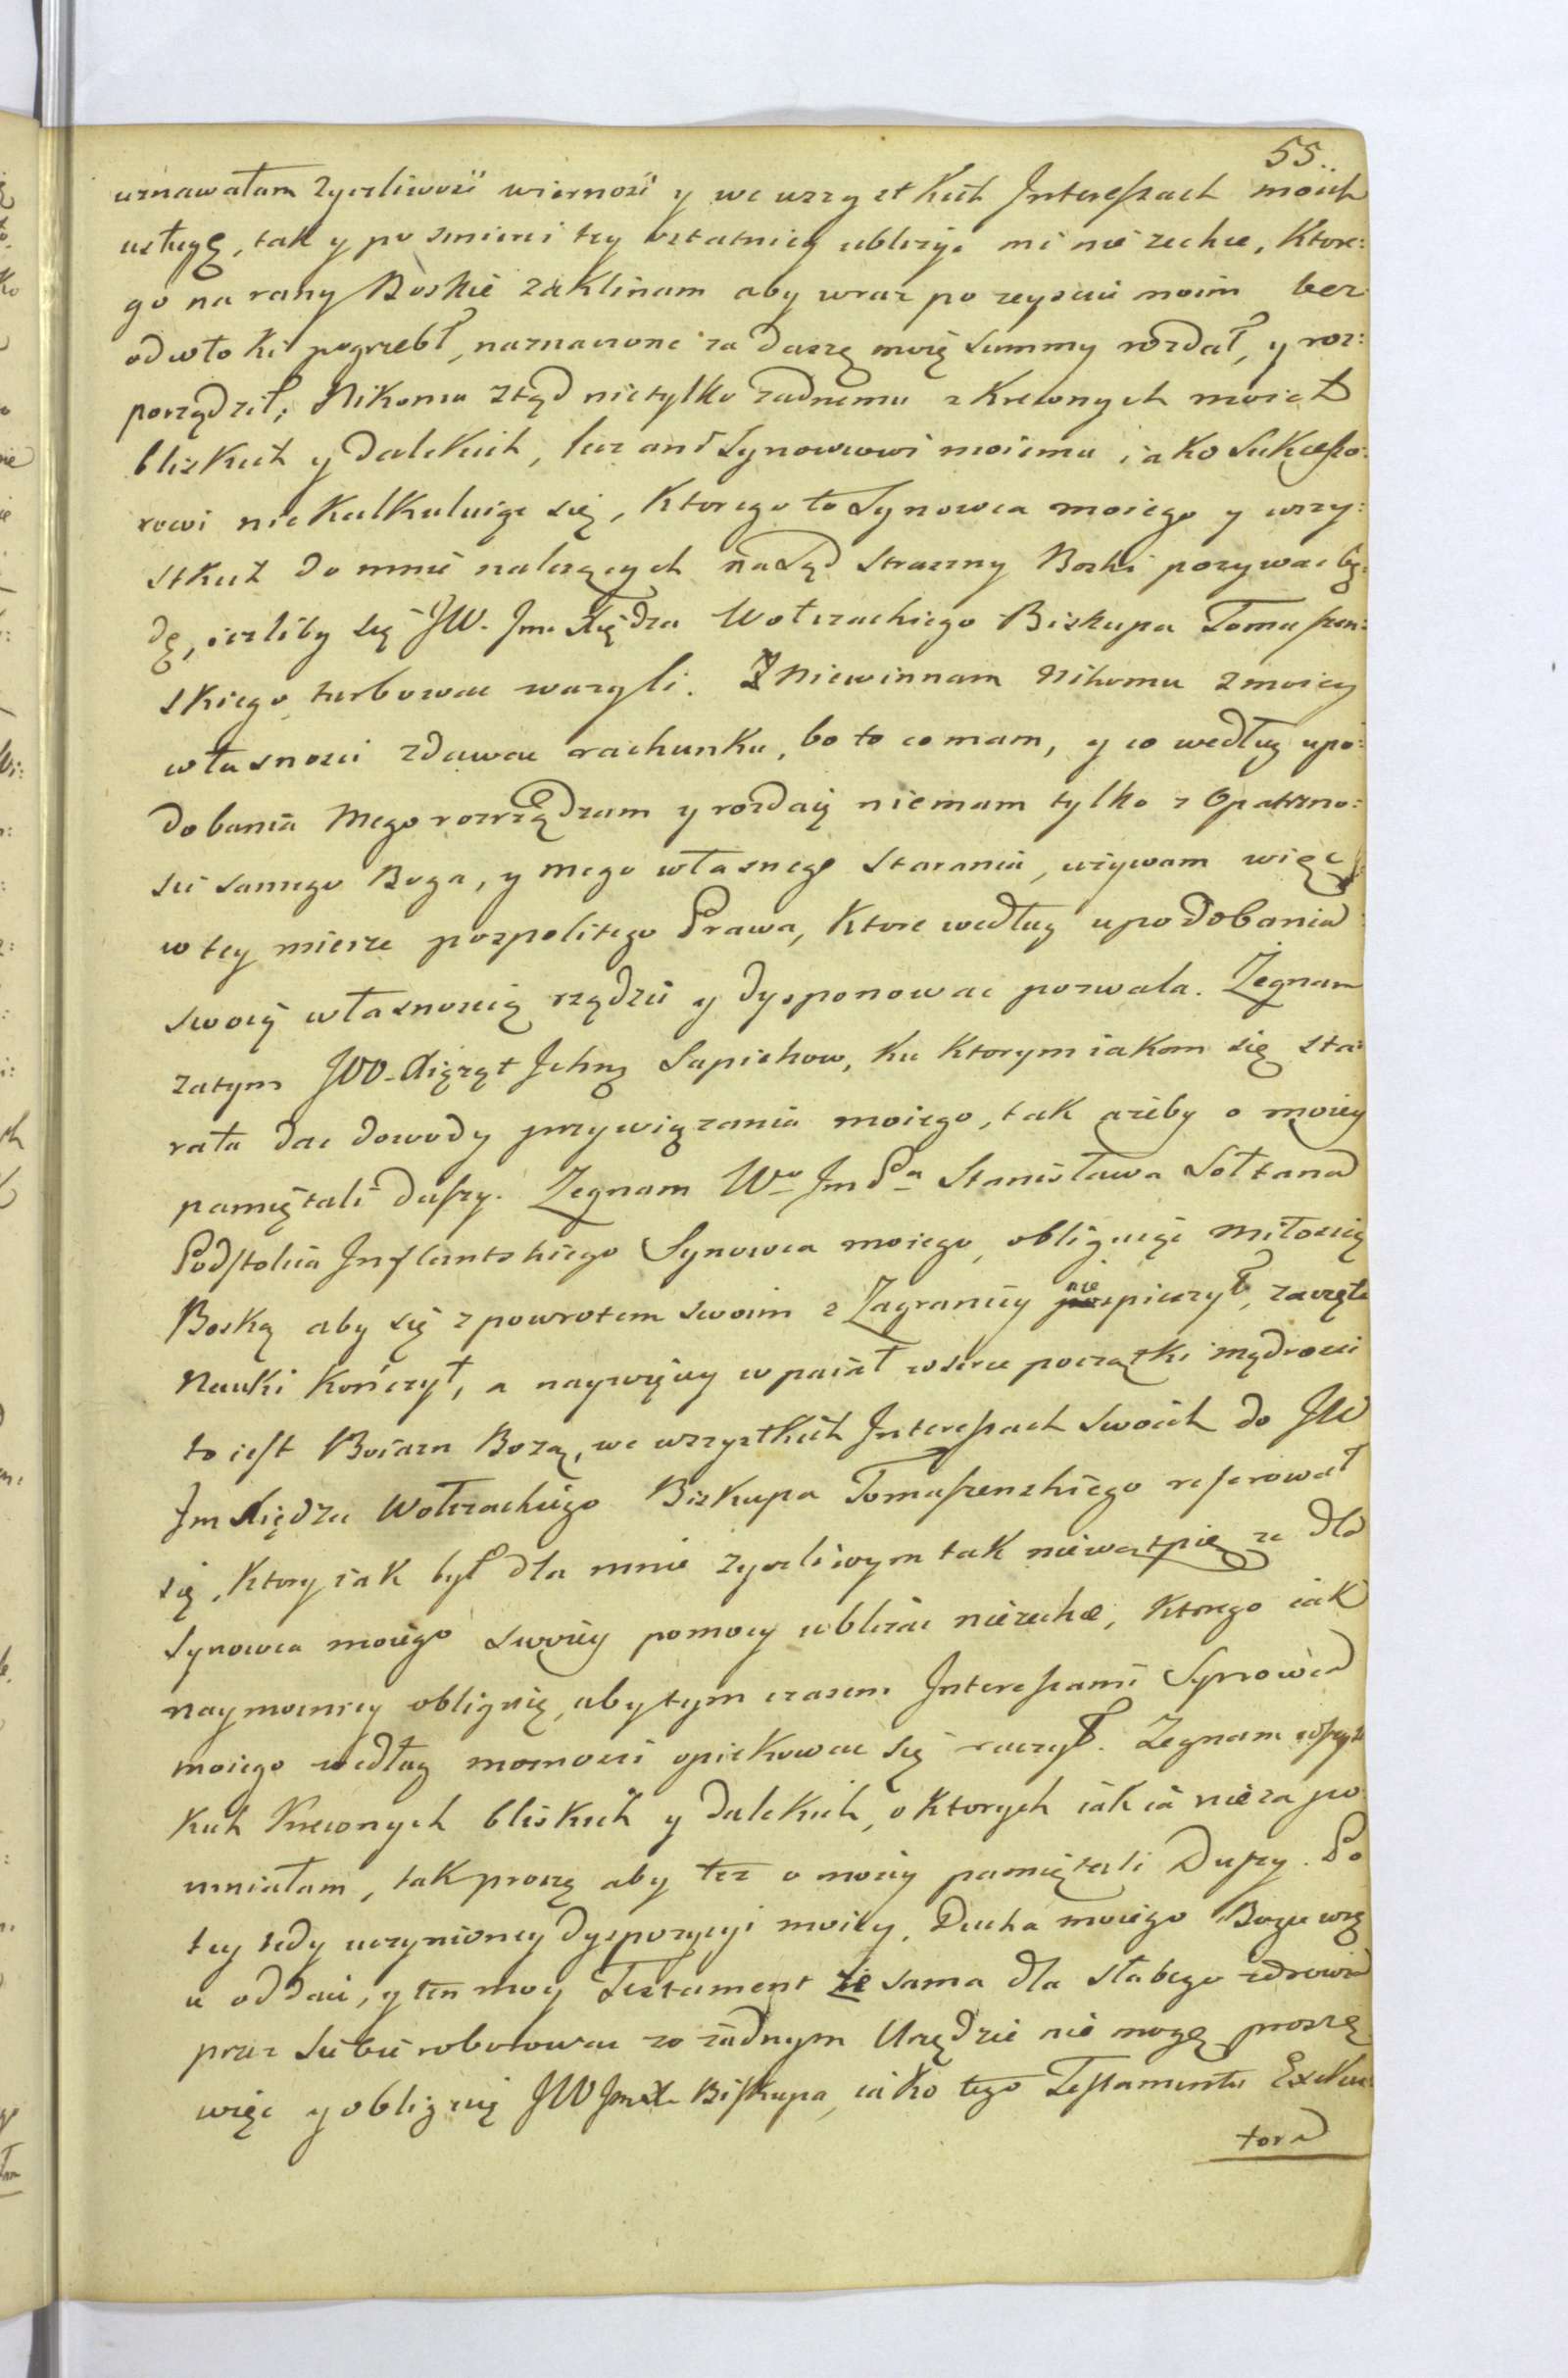 55.
uznawałam życzliwość wierność y we wszystkich Interessach moich
usługę, tak y po smierci tey ostatniey ubliżyc mi nie zechce, Ktore:
go na rany Boskie zaklinam aby wraz po zeysciu moim bez
odwłoki pogrzebł, naznaczone za duszę moię summy rozdał, y roz:
porządził; Nikomu ztąd nietylko żadnemu z Krewnych moich
blizkich y dalekich, lecz ani Synowcowi moiemu iako Sukcesso:
rowi niekalkuluiąc się, Ktorego to Synowca moiego y wszy:
stkich do mnie należących na Sąd straszny Boski pozywac bę:
dę, ieżliby się JW. Jm. Xiędza Wołczackiego Biskupa Tomassen:
skiego turbowac ważyli. Niewinnam Nikomu z moiey
własnosci zdawac rachunku, bo to co mam, y co według upo:
dobania Mego rozrządzam y rozdaię niemam tylko z Opatrzno:
sci samego Boga, y mego własnego starania, używam więc
w tey mierze pospolitego Prawa, Ktore według upodobania
swoią własnoscią rządzić y dysponowac pozwala. Żegnam
zatym JOO. Xiążąt Ichmę Sapiehow, ku Ktorym iakom się sta:
rała dac dowody przywiązania moiego, tak ażeby o moiey
pamiętali duszy. Żegnam Wo JmPa Stanisława Sołtana
Podstolica Inflantskiego Synowca moiego, obliguiąc miłoscią
Boską aby się z powrotem swoim z Zagranicy nie spieszył, zaczęte
Nauki kończył, a naywięcey wpaiał w serce początki mądrosci
to iest Boiazn Bozą, we wszystkich Interessach swoich do JW
Jm Xiędza Wołczackiego Biskupa Tomassenskiego referował
się, Ktory iak był dla mnie życzliwym tak niewątpię że dla
Synowca moiego swoiey pomocy ubliżac niezechce, Ktorego iak
naymocniey obliguię, aby tym czasem Interessami Synowca
moiego według mocnosci opiekowac się raczył. Żegnam wszyst
kich Krewnych bliskich y dalekich, o Ktorych iak ia nie zapo
mniałam, tak proszę aby też o moiey pamiętali Duszy. Po
tey tedy uczynioney dyspozycyi moiey, Ducha moiego Bogu wrę
u oddaię, y ten moy Testament że sama dla słabego zdrowia
przez siebie roborowac w żadnym Urzędzie nie mogę proszę
więc y obliguię JW Jm X. Biskupa, iako tego Testamentu Exeku
tora